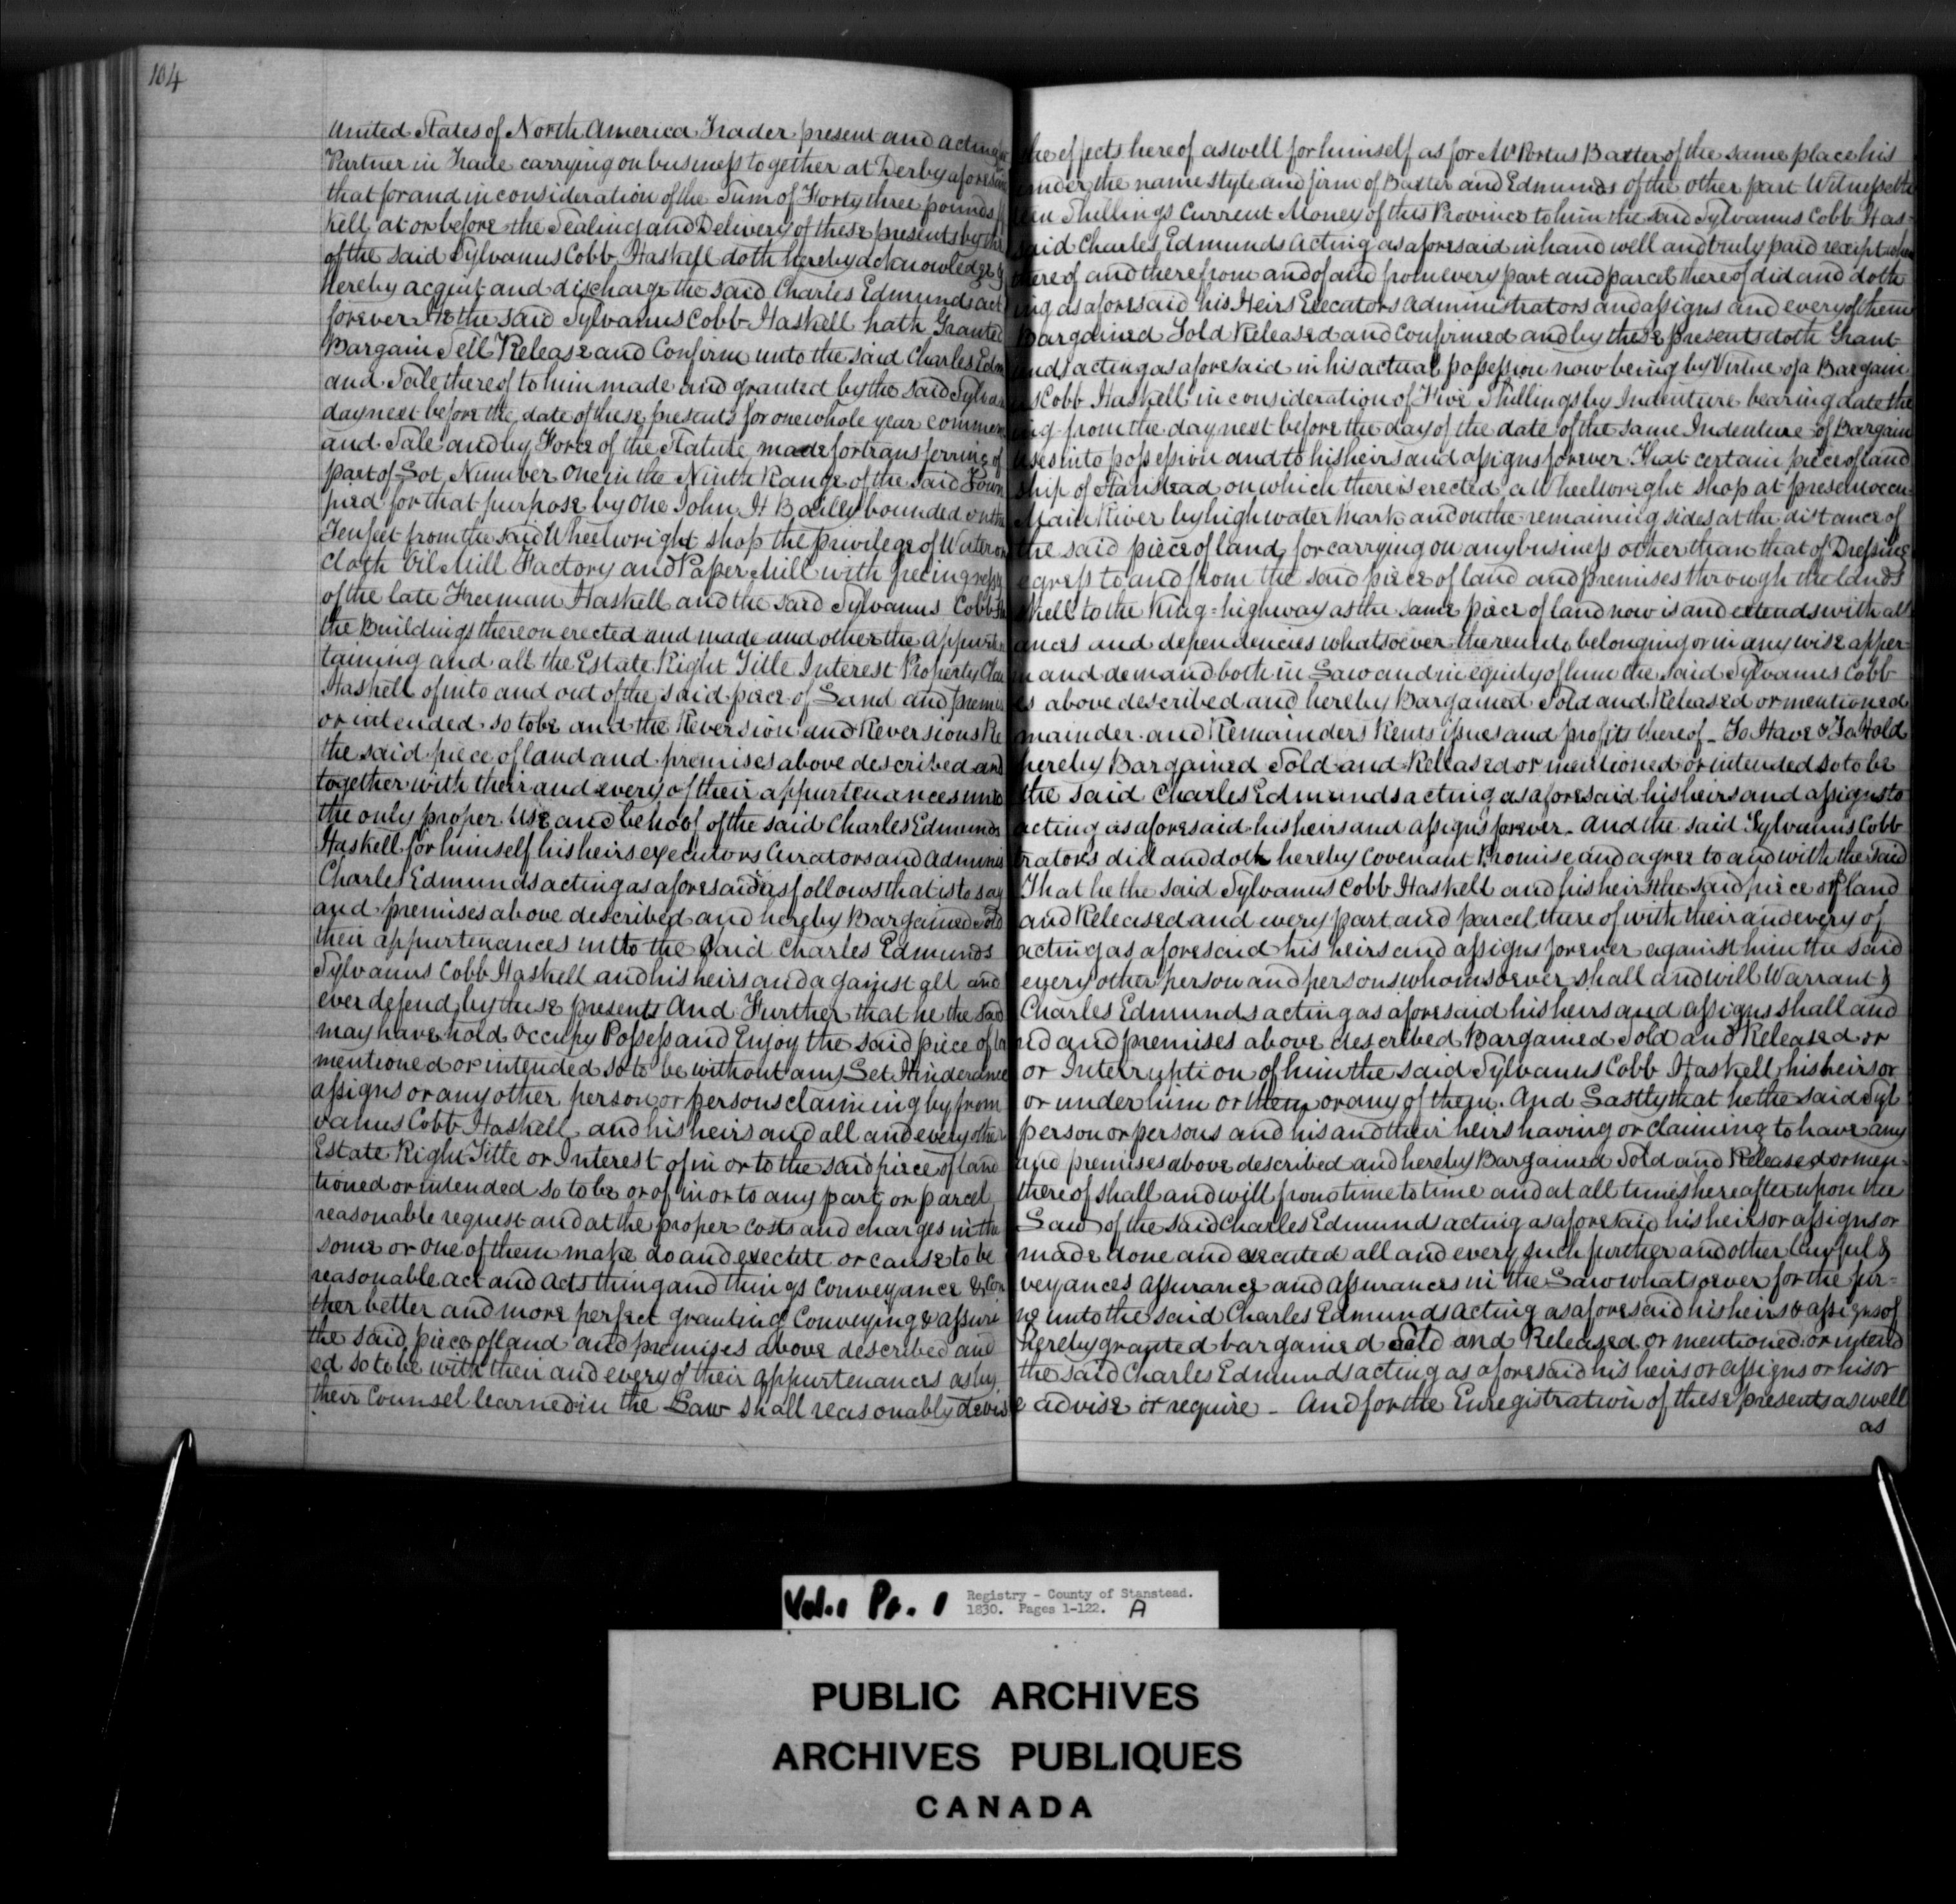 104
United States of North America Trader present and acting the effects hereof as well for himself as for Mr Portus Baxter of the same place his
Partner in Trade carrying on business together at Derby aforesaid under the name style and firm of Baxter and Edmunds of the other part Witnesseth
that for and in consideration of the Sum of Forty three pounds Shillings Current Money of this Province to him the said Sylvanus Cobb Has-
kell at or before the Sealing and Delivery of these presents by the said Charles Edmunds Acting as aforesaid in hand well and truly paid receipt
of the said Sylvanus Cobb Haskell doth hereby acknowledge & thereof and therefrom and of and from every part and parcel thereof did and doth
hereby acquit and discharge the said Charles Edmunds acting as aforesaid his Heirs Executors Administrators and assigns and every of them
forever He the said Sylvanus Cobb Haskell hath Granted Bargained Sold Released and Confirmed and by these presents doth Grant
Bargain Sell Release and Confirm unto the said Charles Edmunds acting as aforesaid in his actual possession now being by Virtue of a Bargain
and Sale thereof to him made and granted by the said Sylvanus Cobb Haskell in consideration of Five Shillings by Indenture bearing date the
day next before the date of these presents for one whole year commencing from the day next before the day of the date of the same Indenture of Bargain
and Sale and by Force of the Statute made for transferring of uses into possession and to his heirs and assigns forever That certain piece of land
part of Lot Number One in the Ninth Range of the said Township of Stanstead on which there is erected a Wheelwright shop at present occu-
pied for that purpose by One John H Bailley bounded on the Main River by high water Mark and on the remaining sides at the distance of
Ten feet from the said Wheelwright shop the privilege of Water on the said piece of land, for carrying on any business other than that of Dressing
Cloth Oil Mill Factory and Paper Mill with free ingress egress to and from the said piece of land and premises through the lands
of the late Freeman Haskell and the said Sylvanus Cobb Haskell to the King=highway as the same piece of land now is and extends with all
the Buildings thereon erected and made and other the appurtenances and dependencies whatsoever thereunto belonging or in any wise apper-
taining and all the Estate Right Title Interest Property Claim and demand both in Law and in equity of him the said Sylvanus Cobb
Haskell of into and out of the said piece of Land and premises above described and hereby Bargained Sold and Released or mentioned
or intended so to be and the Reversion and Reversions Remainder and Remainders Rents issues and profits thereof - To Have & To Hold
the said piece of land and premises above described and hereby Bargained Sold and Released or mentioned or intended so to be
together with their and every of their appurtenances unto the said Charles Edmunds acting as aforesaid his heirs and assigns to
the only proper Use and behoof of the said Charles Edmunds acting as aforesaid his heirs and assigns forever - And the said Sylvanus Cobb
Haskell for himself his heirs executors Curators and Administrators did and doth hereby Covenant Promise and agree to and with the said
Charles Edmunds acting as aforesaid as follows that is to say That he the said Sylvanus Cobb Haskell and his heirs the said piece of land
and premises above described and hereby Bargained Sold and Released and every part and parcel thereof with their and every of
their appurtenances unto the said Charles Edmunds acting as aforesaid his heirs and assigns forever against him the said
Sylvanus Cobb Haskell and his heirs and against all and every other person and persons whomsoever shall and will Warrant &
ever defend by these presents And Further that he the said Charles Edmunds acting as aforesaid his heirs and assigns shall and
may have hold Occupy Possess and Enjoy the said piece of land and premises above described Bargained Sold and Released or
mentioned or intended so to be without any Let Hinderance or Interruption of him the said Sylvanus Cobb Haskell, his heirs or
assigns or any other person or persons claiming by from or under him or them or any of them. And Lastly that he the said Syl
vanus Cobb Haskell and his heirs and all and every other person or persons and his and their heirs having or claiming to have any
Estate Right Title or Interest of in or to the said piece of land and premises above described and hereby Bargained Sold and Released or men-
tioned or intended so to be or of in or to any part or parcel thereof shall and will from time to time and at all times hereafter upon the
reasonable request and at the proper costs and charges in the Law of the said Charles Edmunds acting as aforesaid his heirs or assigns or
some or one of them make do and execute or cause to be made done and executed all and every such further and other lawful &
reasonable act and acts thing and things Conveyance & Conveyances Assurance and Assurances in the Law whatsoever for the fur=
ther better and more perfect granting Conveying & assuring unto the said Charles Edmunds Acting as aforesaid his heirs & assigns of
the said piece of land and premises above described and hereby granted bargained Sold and Released or mentioned or intend
ed so to be with their and every of their appurtenances as by the said Charles Edmunds acting as aforesaid his heirs or assigns or his or
their Counsel learned in the Law shall reasonably devise advise or require - And for the Enregistration of these presents as well
as
Vol. 1 Pt. 1 Registry - County of Stanstead.
1830. Pages 1-122. A
PUBLIC ARCHIVES
ARCHIVES PUBLIQUES
CANADA